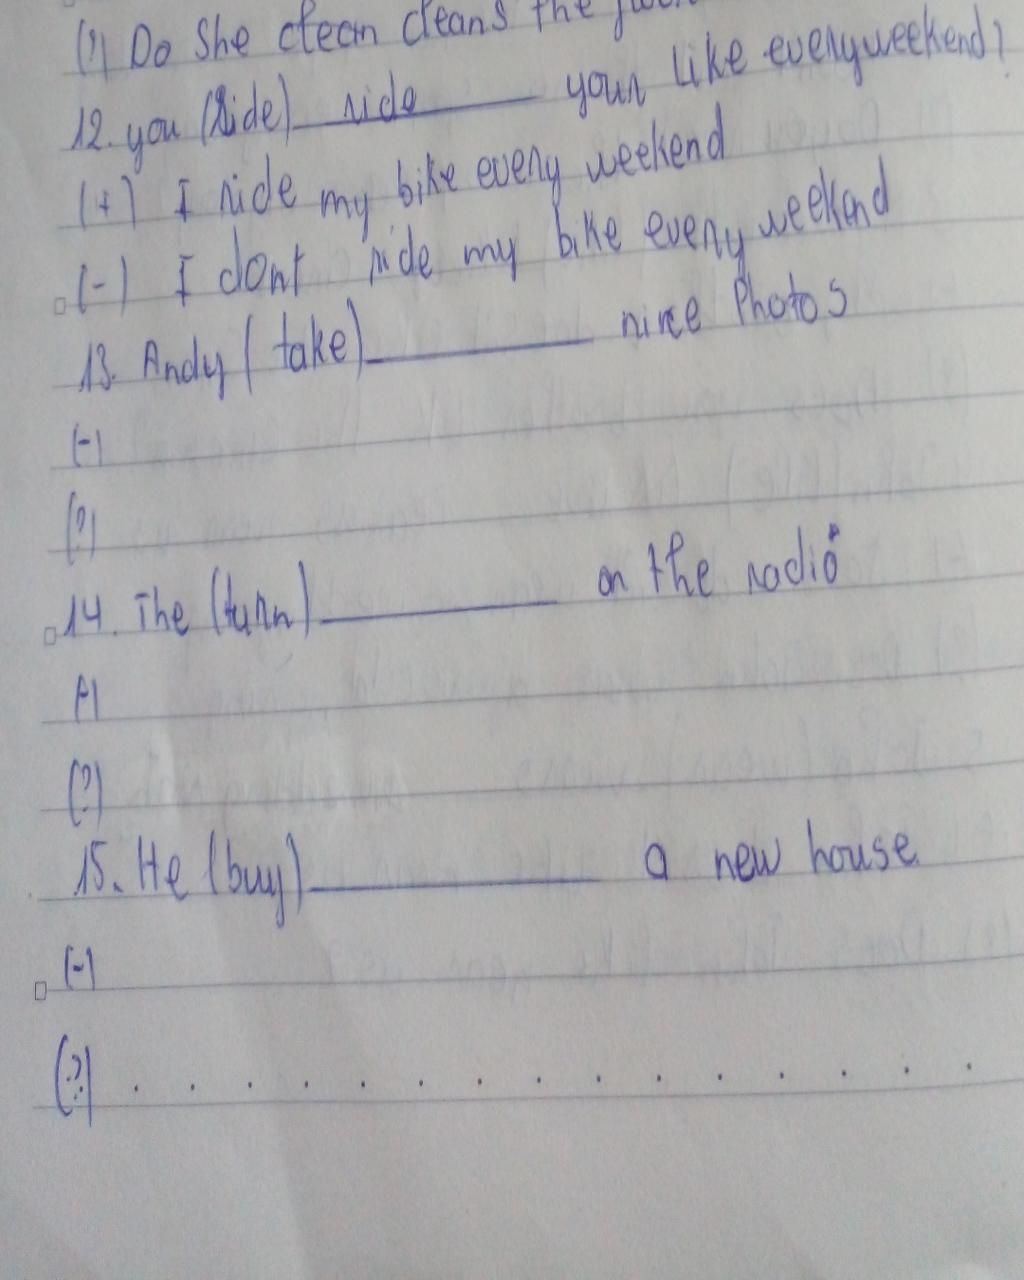 (?) Do She cleans the
12. you (Ride) ride ______ your like everyweekend?
(+) I ride my bike every weekend
(-) I dont ride my bike every weekend
13. Andy (take) ______ nice Photos
(-)
(?)
14. The (turn) ______ on the radio
(-)
(?)
15. He (buy) ______ a new house
(-)
(?) . . . . . . . . . . . . . . .